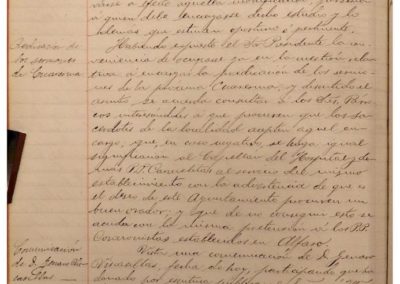 á quien debe encargarse dicho estudio y lo
demas que estimen oportuno ó pertinente.
Habiendo expuesto el Sr Presidente la con-
veniencia de ocuparse ya en la cuestion rela-
tiva á encargar la predicacion de los sermo-
nes de la próxima Cuaresma, y discutido el
asunto, se acuerda consultar á los Sres. Párro-
cos interesandoles á que procuren que los sa-
cerdotes de la localidad acepten aquel en-
cargo, que, en caso negativo, se haga igual
significacion al Capellan del Hospital y de-
mas P.P. Carmelitas al servicio del mismo
establecimiento con la advertencia de que es
el deseo de este Ayuntamiento procuren un
buen orador, y que de no conseguir esto se
acuda con la misma pretension á los P.P.
establecidos en Alfaro.
Vista una comunicacion de D. Genaro
fecha de hoy, participando que ha
Sermones
de Cuaresma
Comunicacion
de D. Genaro